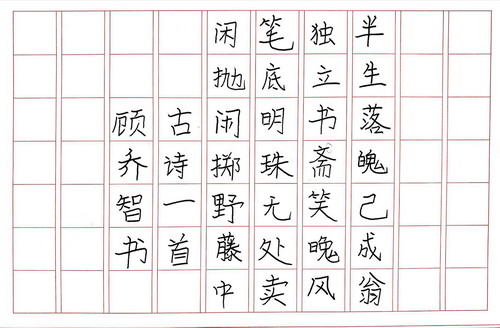 半生落魄己成翁
独立书斋笑晚风
笔底明珠无处卖
闲抛闲掷野藤中
古诗一首
顾乔智书